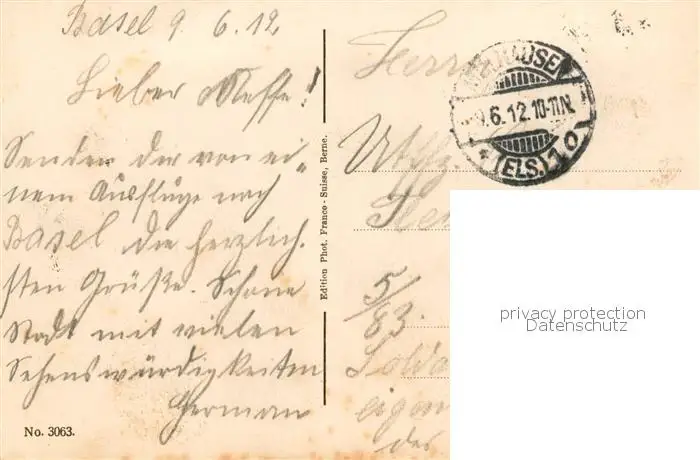 Basel 9. 6. 12.
Lieber Neffe!
Senden dir von ei-
nem Ausfluge nach
Basel die herzlich-
sten Grüße. Schöne
Stadt mit vielen
Sehenswürdigkeiten
Herman
No. 3063.
Edition Phot. Franco-Suisse, Berne.
Herrn
MÜLHAUSEN
9.6.12.10-11.N.
*(ELS.)1 o
Uttfz.
5/83.
Solda
eigen
des
privacy protection
Datenschutz